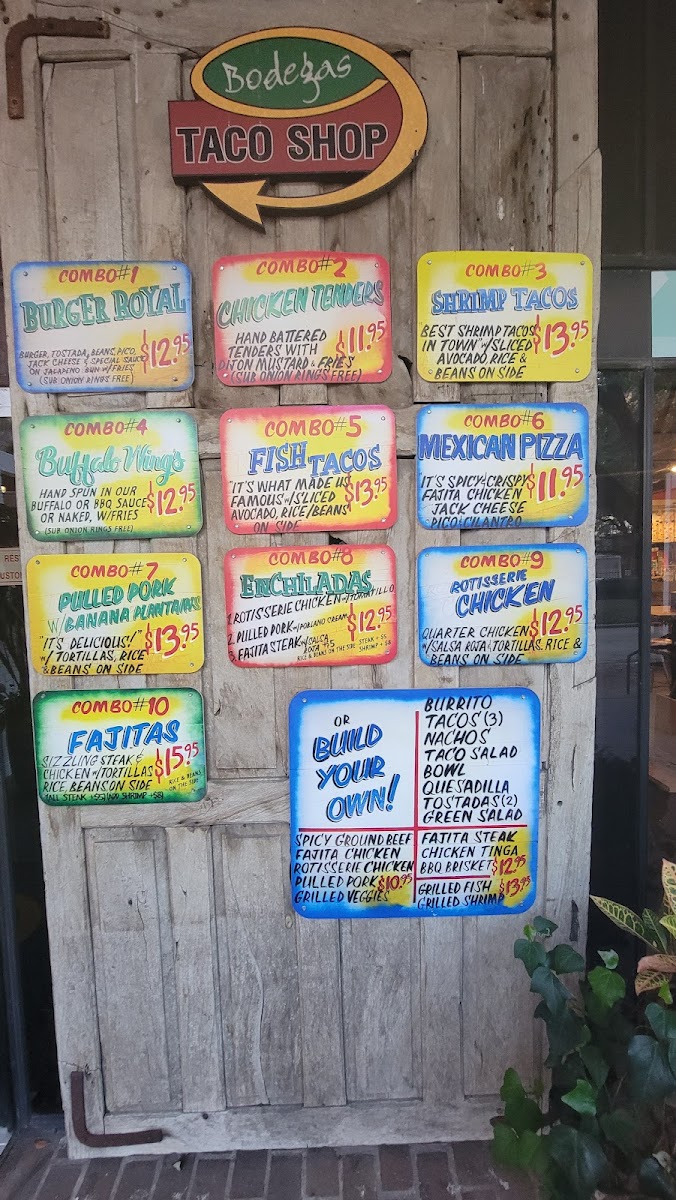 Bodegas
TACO SHOP
COMBO#1
BURGER ROYAL
BURGER, TOSTADA, BEANS, PICO,
JACK CHEESE & SPECIAL SAUCE
ON JALAPENO BUN W/FRIES
(SUB ONION RINGS FREE)
$12.95
COMBO#2
CHICKEN TENDERS
HAND BATTERED
TENDERS WITH
DIJON MUSTARD & FRIES
(SUB ONION RINGS FREE)
$11.95
COMBO#3
SHRIMP TACOS
BEST SHRIMP TACOS
IN TOWN W/SLICED
AVOCADO, RICE &
BEANS ON SIDE
$13.95
COMBO#4
Buffalo Wing's
HAND SPUN IN OUR
BUFFALO OR BBQ SAUCE
OR NAKED, W/FRIES
(SUB ONION RINGS FREE)
$12.95
COMBO#5
FISH TACOS
"IT'S WHAT MADE US
FAMOUS W/SLICED
AVOCADO, RICE/BEANS
ON SIDE
$13.95
COMBO#6
MEXICAN PIZZA
IT'S SPICY-CRISPY
FAJITA CHICKEN
JACK CHEESE
PICO-CILANTRO
$11.95
COMBO#7
PULLED PORK
W/BANANA PLANTAINS
"IT'S DELICIOUS!"
W/TORTILLAS, RICE
& BEANS ON SIDE
$13.95
COMBO#8
ENCHILADAS
1. ROTISSERIE CHICKEN W/TOMATILLO
2. PULLED PORK W/POBLANO CREAM
3. FAJITA STEAK W/SALSA
ROJA +$5
RICE & BEANS ON THE SIDE
STEAK + $5
SHRIMP + $8
$12.95
COMBO#9
ROTISSERIE
CHICKEN
QUARTER CHICKEN
W/SALSA ROJA & TORTILLAS. RICE &
BEANS ON SIDE
$12.95
COMBO#10
FAJITAS
SIZZLING STEAK &
CHICKEN W/TORTILLAS
RICE, BEANS ON SIDE
(ALL STEAK +$5)(ADD SHRIMP +$8)
RICE & BEANS
ON THE SIDE
$15.95
OR
BUILD
YOUR
OWN!
BURRITO
TACOS (3)
NACHOS
TACO SALAD
BOWL
QUESADILLA
TOSTADAS (2)
GREEN SALAD
SPICY GROUND BEEF
FAJITA CHICKEN
ROTISSERIE CHICKEN
PULLED PORK
GRILLED VEGGIES
$10.95
FAJITA STEAK
CHICKEN TINGA
BBQ BRISKET $12.95
GRILLED FISH
GRILLED SHRIMP
$13.95